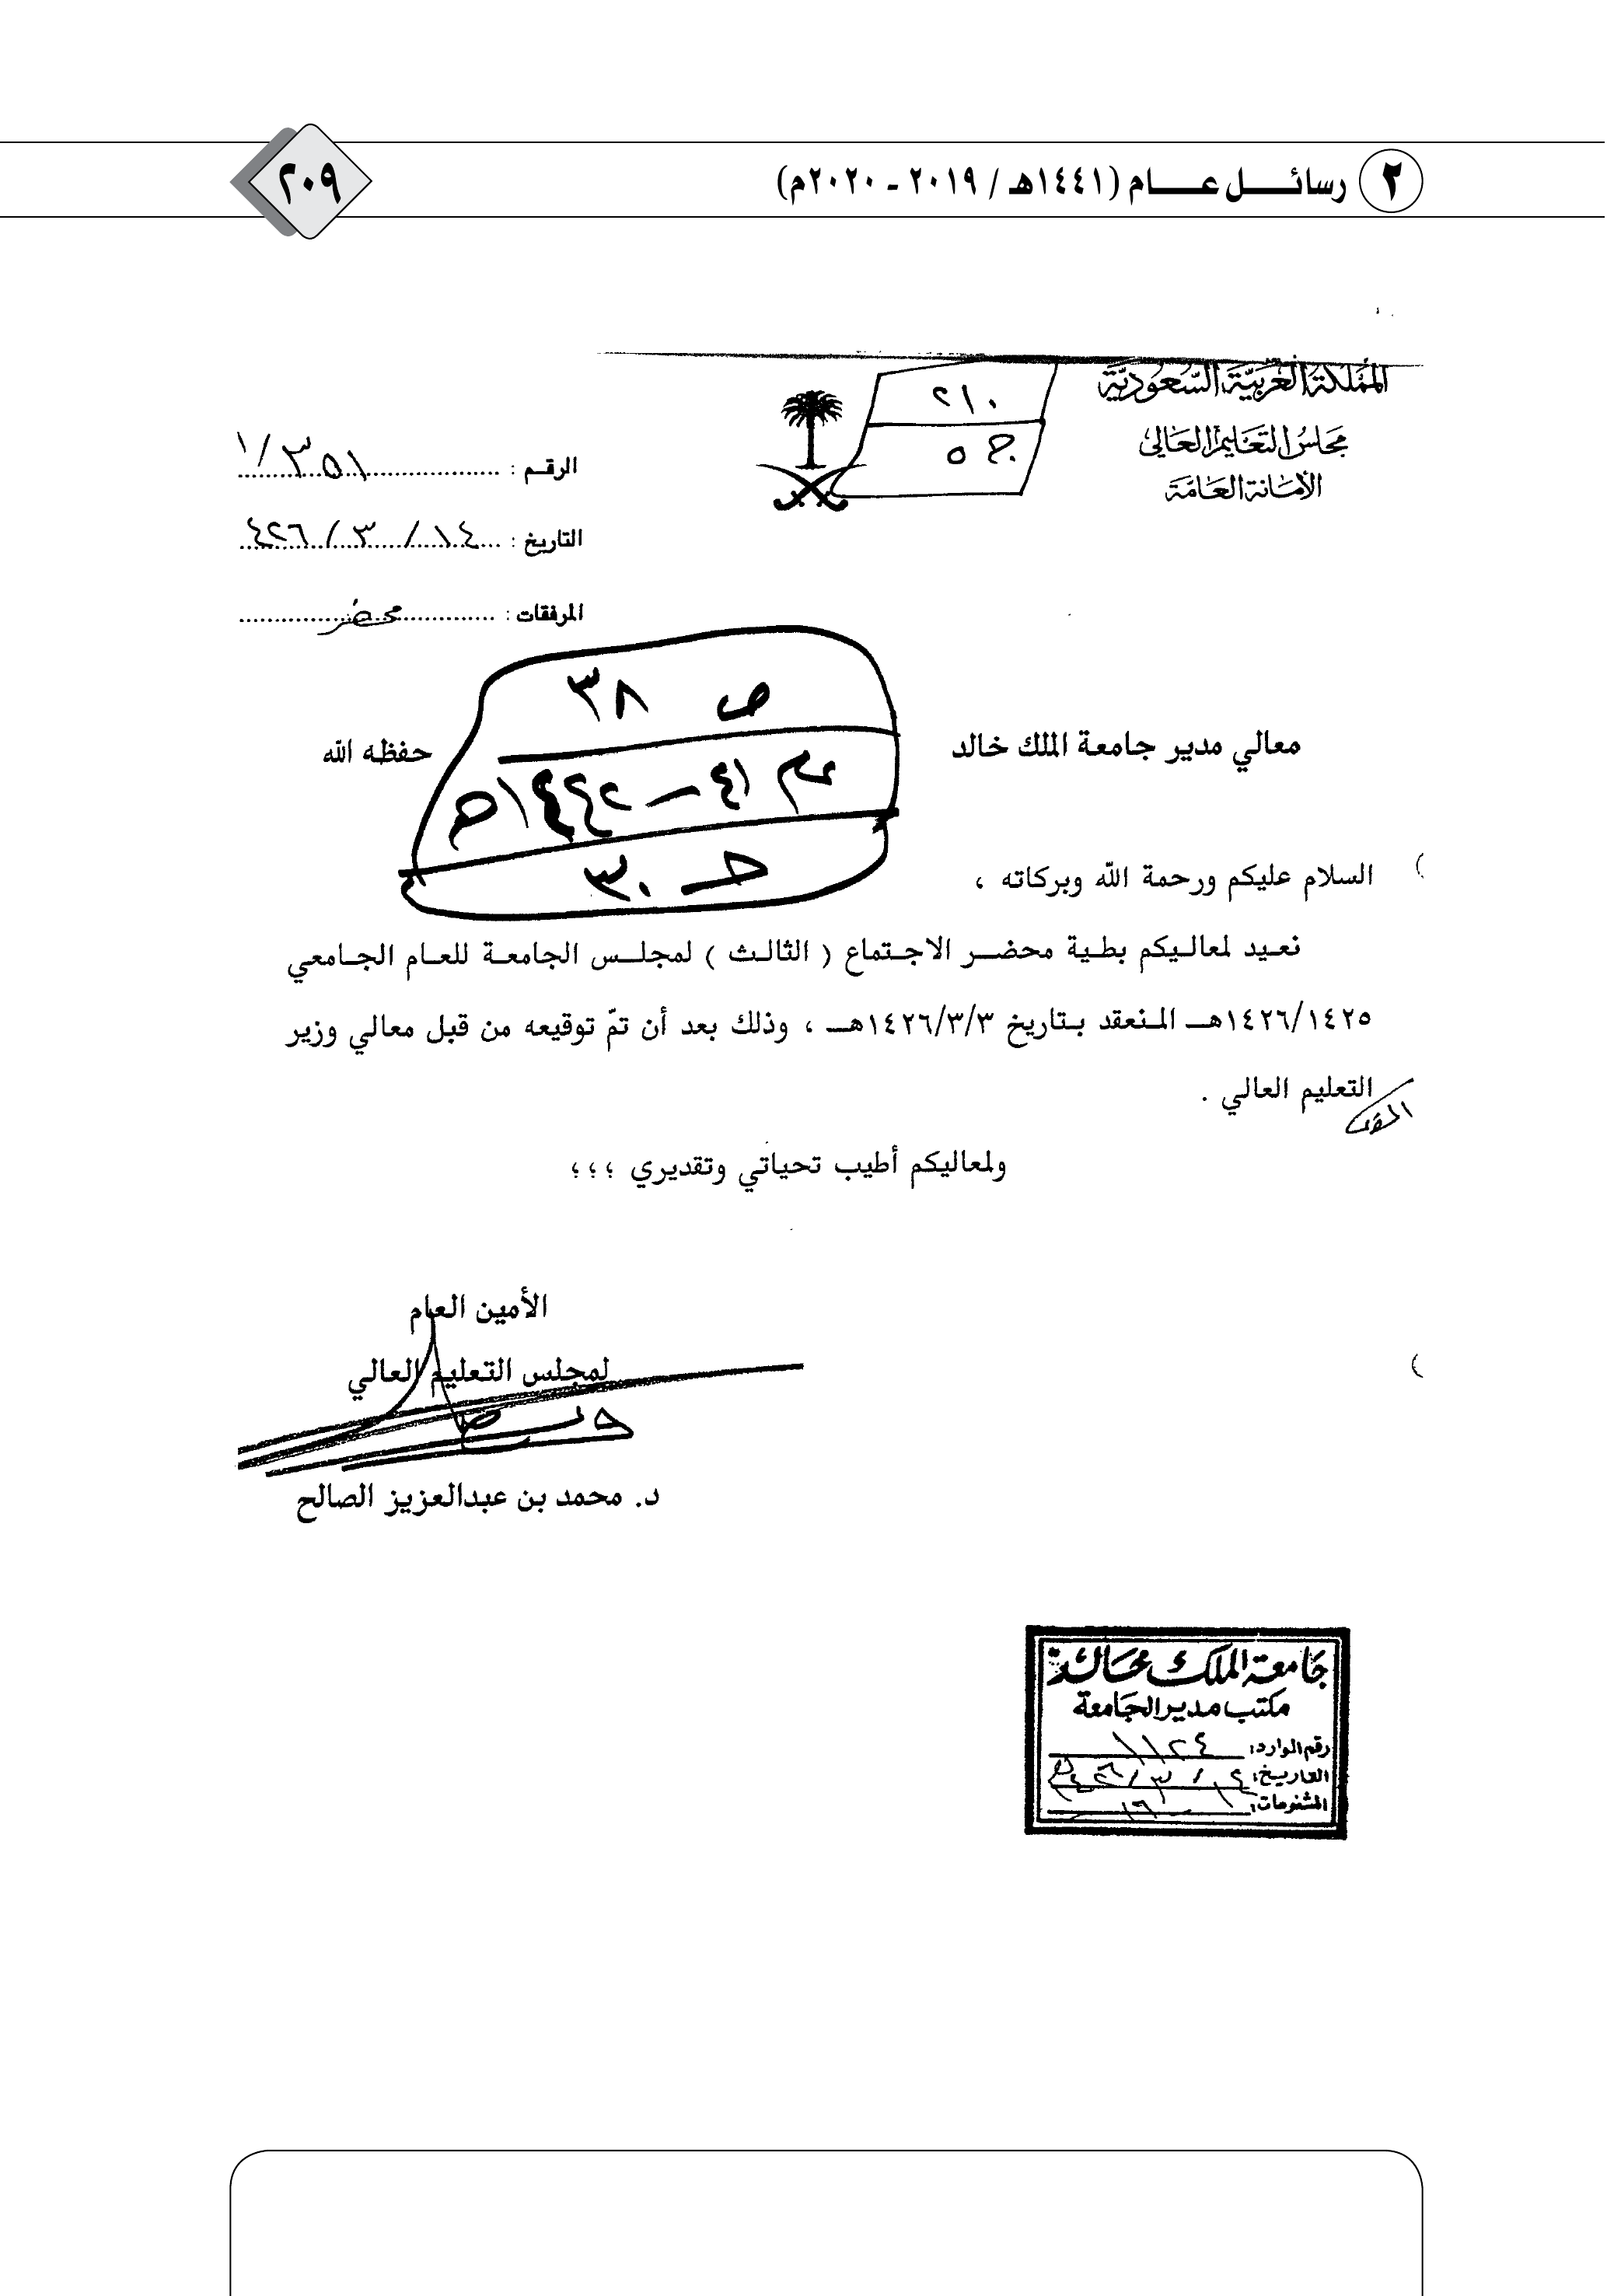 ٢ رسائــــل عــــام (١٤٤١هـ / ٢٠١٩ - ٢٠٢٠م)
٢٠٩
المملكة العربية السعودية
مجلس التعليم العالي
الأمانة العامة
٢١٠
ج ٥
الرقم : ١/٣٥١
التاريخ : ١٤ / ٣ / ٤٢٦
المرفقات : محضر
ص ٣٨
٤١ – ١٤٤٢هـ
حـ ٣٠
معالي مدير جامعة الملك خالد حفظه الله
السلام عليكم ورحمة الله وبركاته ،
نعيد لمعاليكم بطية محضر الاجتماع ( الثالث ) لمجلس الجامعة للعام الجامعي
١٤٢٦/١٤٢٥هـ المنعقد بتاريخ ١٤٢٦/٣/٣هـ ، وذلك بعد أن تمّ توقيعه من قبل معالي وزير
التعليم العالي .
ولمعاليكم أطيب تحياتي وتقديري ؛؛؛
الأمين العام
لمجلس التعليم العالي
د. محمد بن عبدالعزيز الصالح
جامعة الملك خالد
مكتب مدير الجامعة
رقم الوارد: ١١٢٤
التاريخ:
المشفوعات: